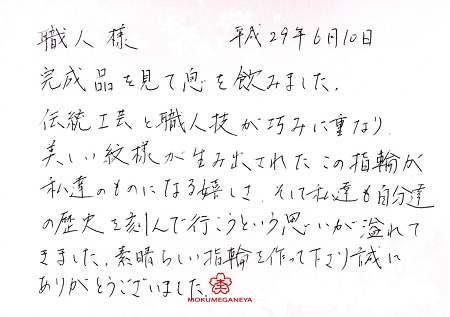 職人様　平成29年6月10日
完成品を見て息を飲みました。
伝統工芸と職人技が巧みに重なり、
美しい紋様が生み出されたこの指輪が
私達のものになる嬉しさ、そして私達も自分達
の歴史を刻んで行こうという思いが溢れて
きました。素晴らしい指輪を作って下さり誠に
ありがとうございました。
MOKUMEGANEYA